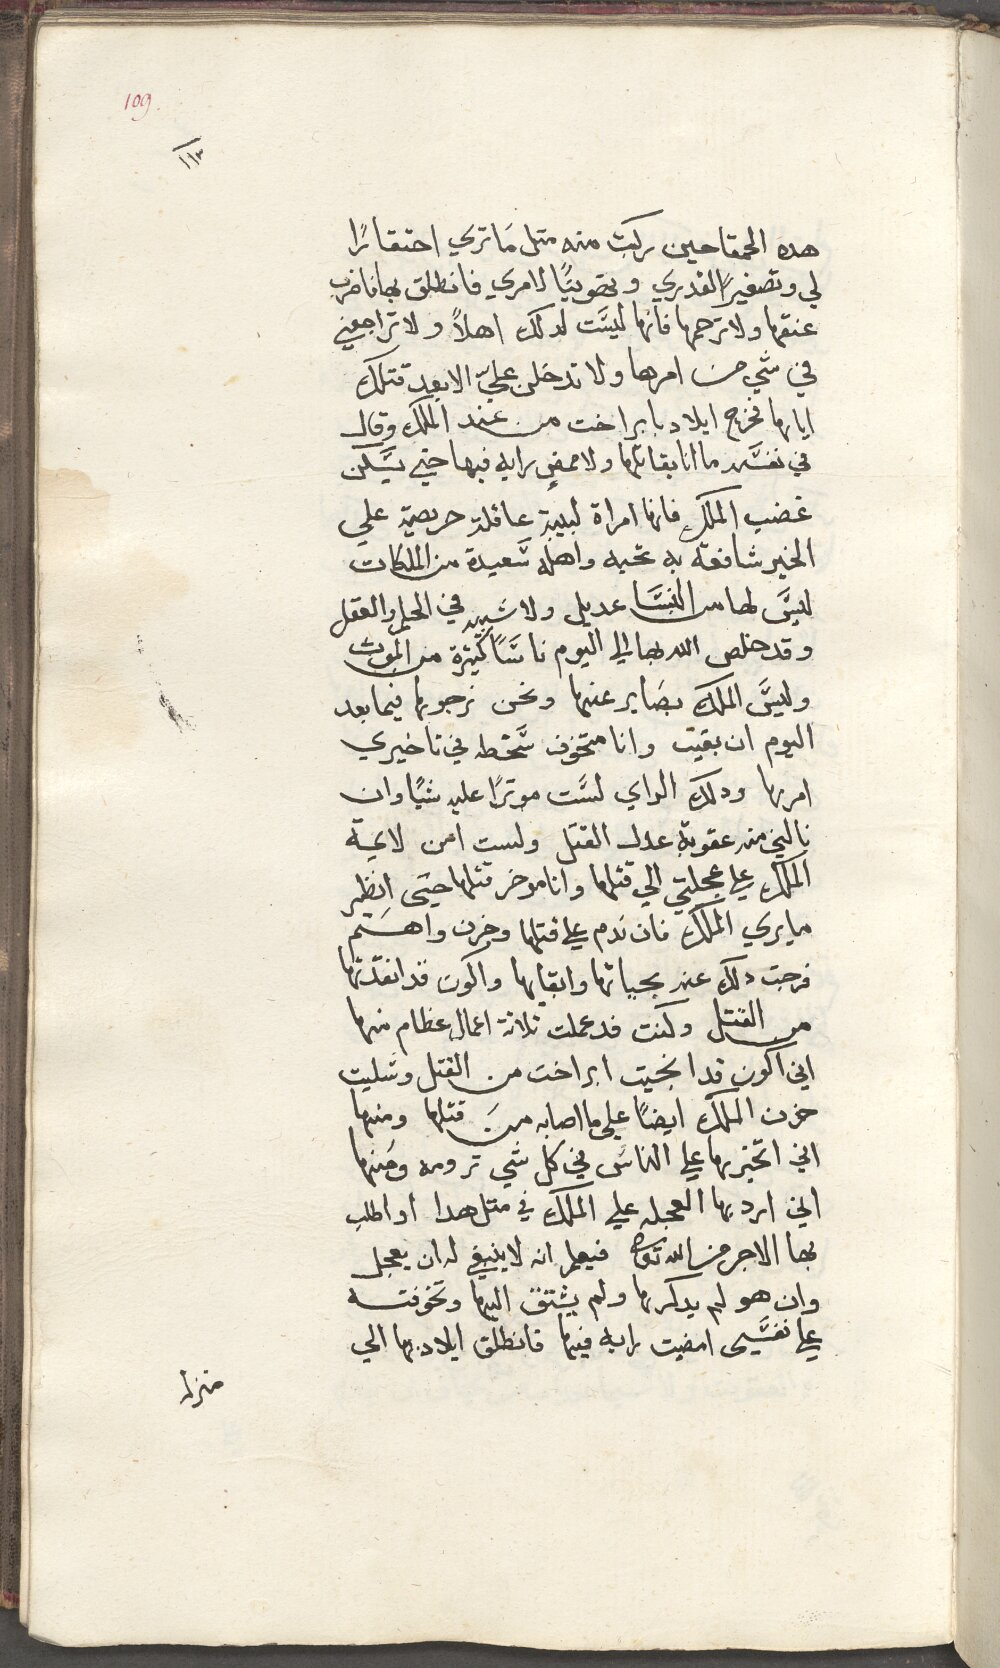 109
١١٣
هده الحمقا حين ركبت منه متل ما تري احتقارًا
لي وتصغيرًا لقدري وتهوينًا لامري فانطلق بها فاضرب
عنقها ولا ترحمها فانها ليست لدلك اهلاً ولا تراجعني
في شي من امرها ولا تدخلن عليّ الا بعد قتلك
اياها فخرج ايلاد بابراخت من عند الملك وقال
في نفسه ما انا بقاتلها ولا ممضٍ رايه فيها حتي يسكن
غضب الملك فانها امراة لبيبة عاقلة حريصة علي
الخير شافعة به محبه واهله سعيدة من الملكات
ليس لها من النسا عديل ولا شبيه في الحلم والعقل
وقد خلص الله بها الي اليوم ناسًا كثيرة من الموت
وليس الملك بصابر عنها ونحن نرجوها فيما بعد
اليوم ان بقيت وانا متخوف سخطه في تاخيري
امرها ودلك الراي لست موترًا عليه شيًا وان
نالني منه عقوبة عدل القتل ولست امن لايمة
الملك علي عجلتي الي قتلها وانا موخر قتلها حتى انظر
ما يري الملك فان ندم علي قتلها وحزن واهتم
فرجت دلك عنه بحياتها وابقايها واكون قد انقدتها
من القتل وكنت قد عملت ثلاثة اعمال عظام منها
اني اكون قد انجيت ابراخت من القتل وسليت
حزن الملك ايضًا علي ما اصابه من قتلها ومنها
اني افتخر بها علي الناس في كل شي ترومه ومنها
اني ارد بها العجله علي الملك في متل هدا او اطلب
بها الاجر من الله تعالى فيعلم انه لا ينبغي له ان يعجل
وان هو لم يدكرها ولم يشتق اليها وتخوفته
علي نفسي امضيت رايه فيها فانطلق ايلاد بها الي
منزله